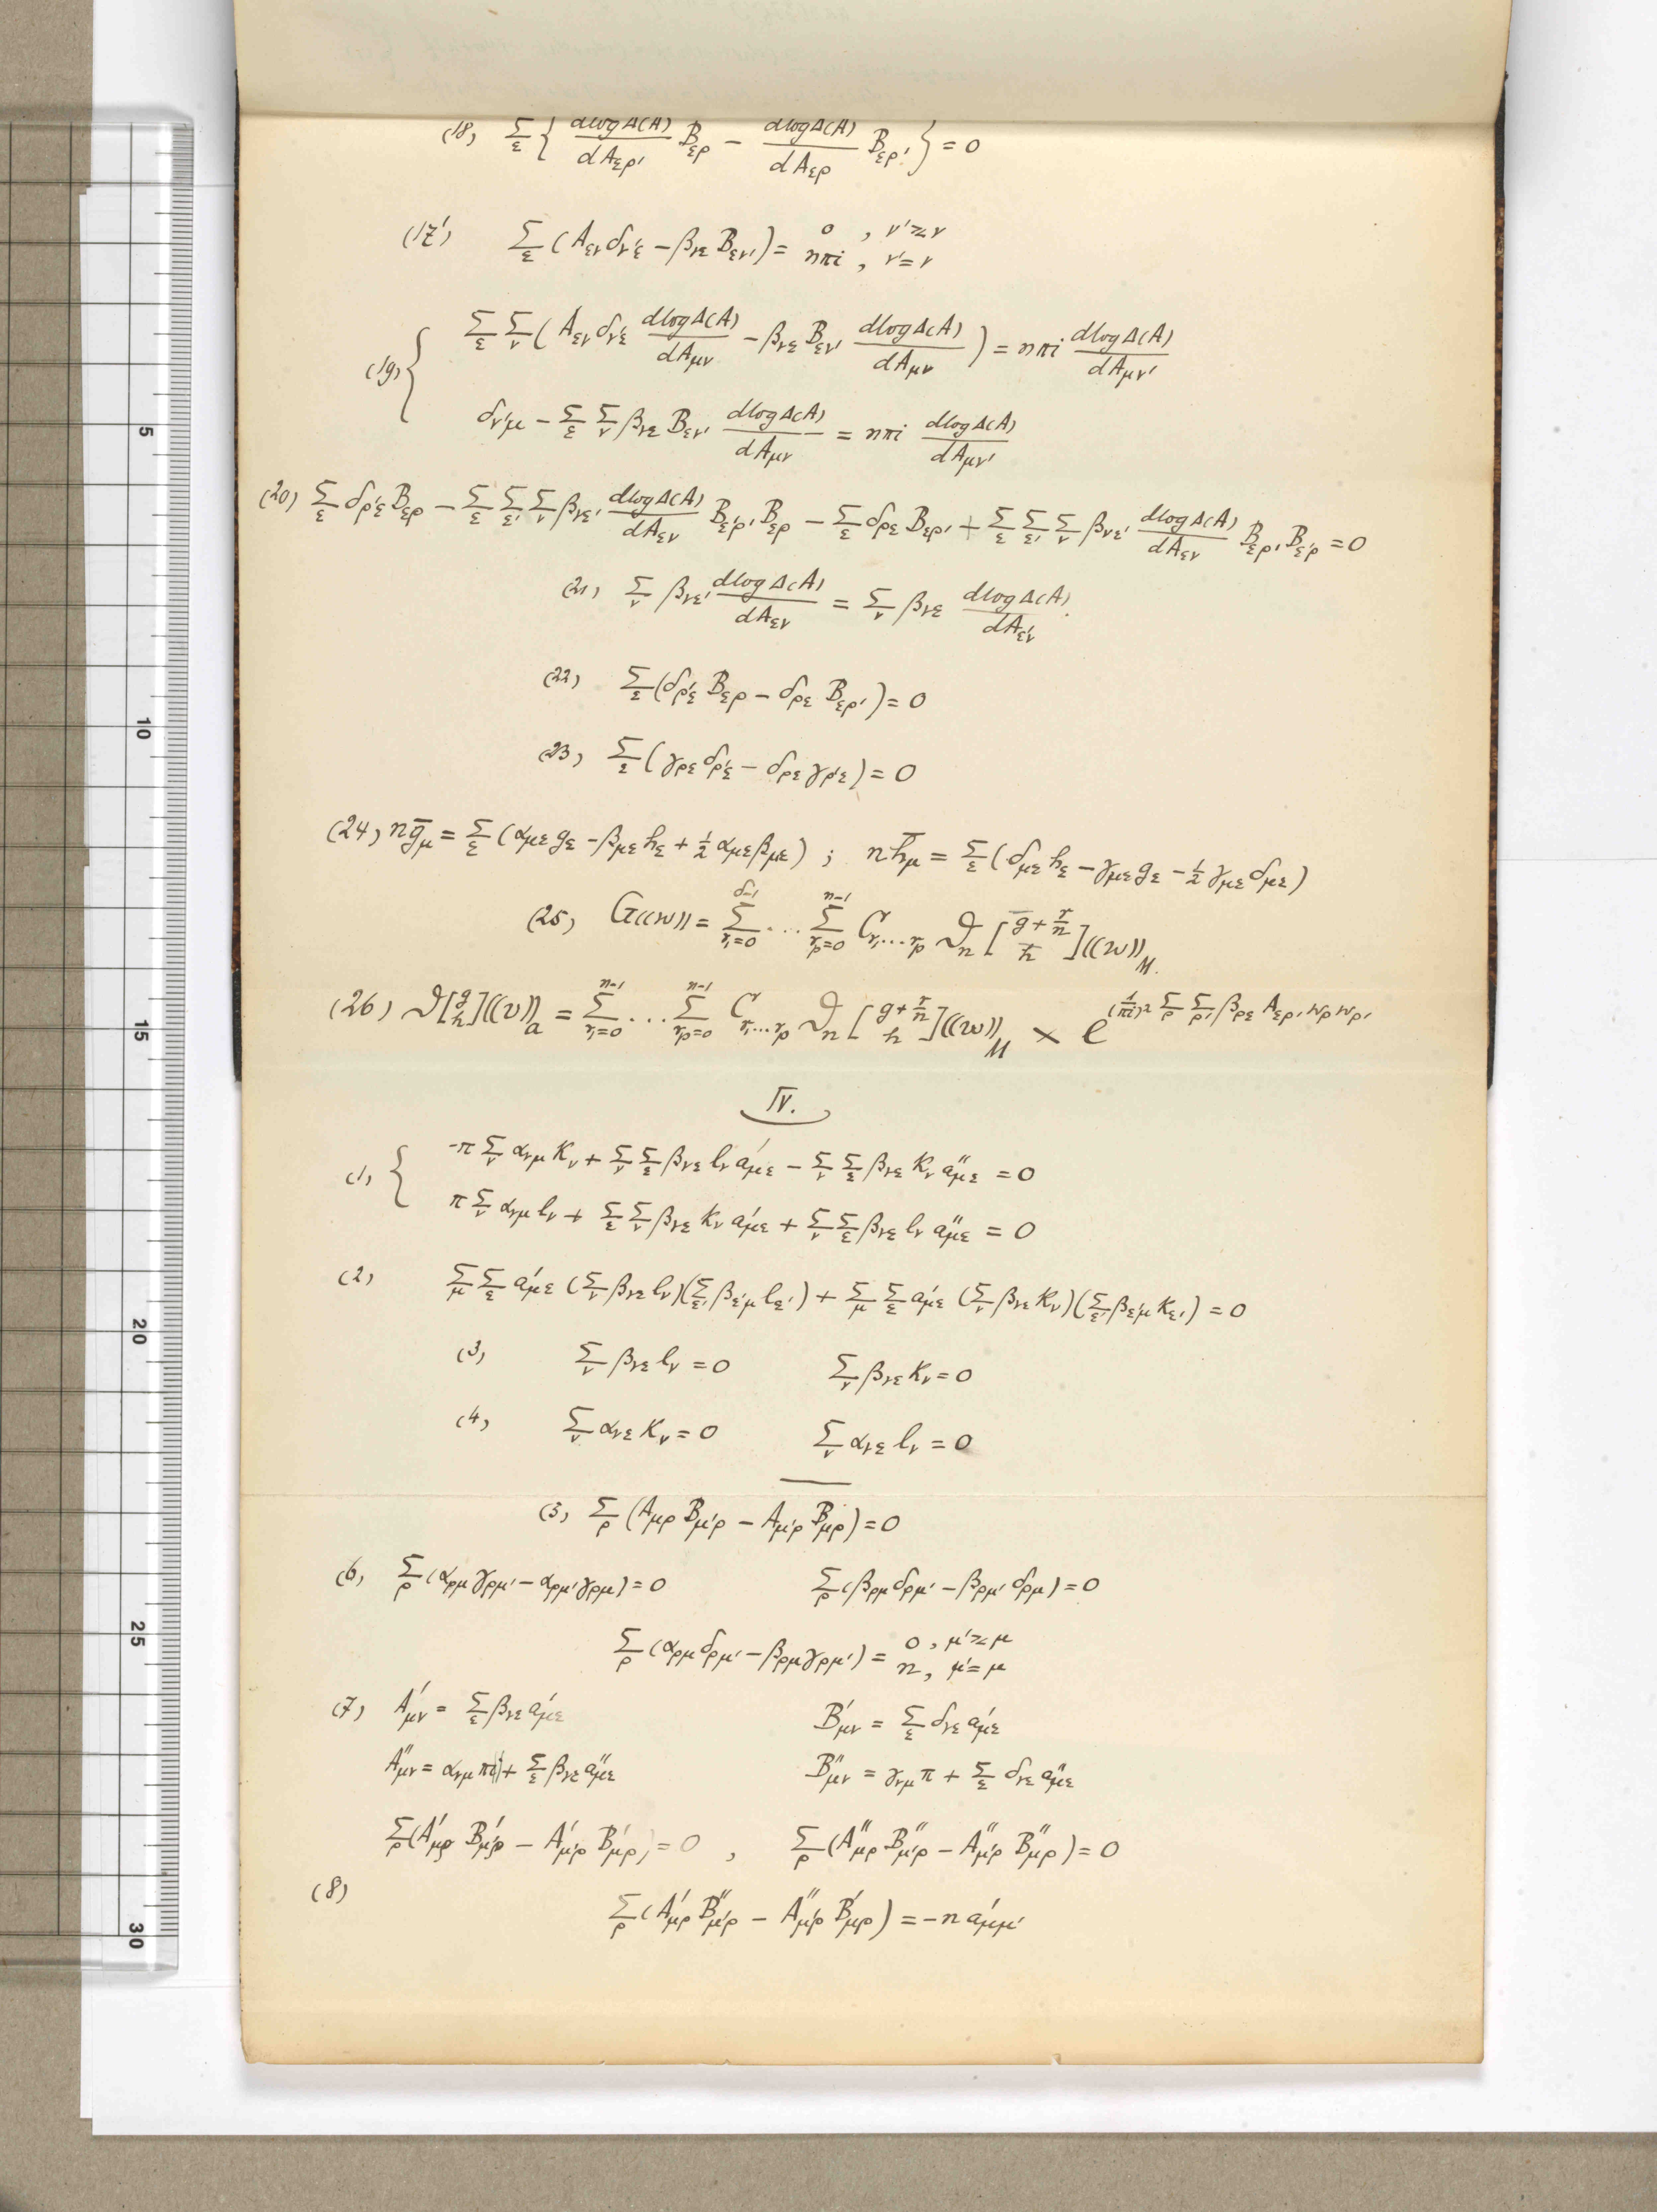 (18) Σ_ε { dlogΔ(A)/dA_ερ' B_ερ − dlogΔ(A)/dA_ερ B_ερ' } = 0
(17') Σ_ε (A_εν δ_ν'ε − β_νε B_εν') = 0 , ν'≷ν
nπi , ν'=ν
(19) { Σ_ε Σ_ν (A_εν δ_ν'ε dlogΔ(A)/dA_μν − β_νε B_εν' dlogΔ(A)/dA_μν) = nπi dlogΔ(A)/dA_μν'
δ_ν'μ − Σ_ε Σ_ν β_νε B_εν' dlogΔ(A)/dA_μν = nπi dlogΔ(A)/dA_μν'
(20) Σ_ε δ_ρ'ε B_ερ − Σ_ε Σ_ε' Σ_ν β_νε' dlogΔ(A)/dA_εν B_ε'ρ' B_ερ − Σ_ε δ_ρε B_ερ' + Σ_ε Σ_ε' Σ_ν β_νε' dlogΔ(A)/dA_εν B_ερ' B_ε'ρ = 0
(21) Σ_ν β_νε' dlogΔ(A)/dA_εν = Σ_ν β_νε dlogΔ(A)/dA_ε'ν .
(22) Σ_ε (δ_ρ'ε B_ερ − δ_ρε B_ερ') = 0
(23) Σ_ε (γ_ρε δ_ρ'ε − δ_ρε γ_ρ'ε) = 0
(24) nḡ_μ = Σ_ε (α_με g_ε − β_με h_ε + ½ α_με β_με) ; nh̄_μ = Σ_ε (δ_με h_ε − γ_με g_ε − ½ γ_με δ_με)
(25) G((w)) = Σ_{r₁=0}^{δ-1} ... Σ_{r_p=0}^{n-1} C_{r₁...r_p} ϑ_n [ḡ+r/n / h̄]((w))_M.
(26) ϑ[g/h]((v))_a = Σ_{r₁=0}^{n-1} ... Σ_{r_p=0}^{n-1} C_{r₁...r_p} ϑ_n [g+r/n / h]((w))_M × e^{(1/πi)² Σ_ρ Σ_ρ' β_ρε A_ερ' w_ρ w_ρ'}
IV.
(1) { -π Σ_ν α_νμ K_ν + Σ_ν Σ_ε β_νε l_ν a'_με − Σ_ν Σ_ε β_νε K_ν a''_με = 0
π Σ_ν α_νμ l_ν + Σ_ε Σ_ν β_νε K_ν a'_με + Σ_ν Σ_ε β_νε l_ν a''_με = 0
(2) Σ_μ Σ_ε a'_με (Σ_ν β_νε l_ν)(Σ_ε' β_ε'μ l_ε') + Σ_μ Σ_ε a'_με (Σ_ν β_νε K_ν)(Σ_ε' β_ε'μ K_ε') = 0
(3) Σ_ν β_νε l_ν = 0 Σ_ν β_νε K_ν = 0
(4) Σ_ν α_νε K_ν = 0 Σ_ν α_νε l_ν = 0
(5) Σ_ρ (A_μρ B_μ'ρ − A_μ'ρ B_μρ) = 0
(6) Σ_ρ (α_ρμ γ_ρμ' − α_ρμ' γ_ρμ) = 0 Σ_ρ (β_ρμ δ_ρμ' − β_ρμ' δ_ρμ) = 0
Σ_ρ (α_ρμ δ_ρμ' − β_ρμ γ_ρμ') = 0 , μ'≷μ
n , μ'=μ
(7) A'_μν = Σ_ε β_νε a'_με B'_μν = Σ_ε δ_νε a'_με
A''_μν = α_νμ πi + Σ_ε β_νε a''_με B''_μν = γ_νμ π + Σ_ε δ_νε a''_με
Σ_ρ (A'_μρ B'_μ'ρ − A'_μ'ρ B'_μρ) = 0 , Σ_ρ (A''_μρ B''_μ'ρ − A''_μ'ρ B''_μρ) = 0
(8)
Σ_ρ (A'_μρ B''_μ'ρ − A''_μ'ρ B'_μρ) = −n a'_μμ'
5
10
15
20
25
30